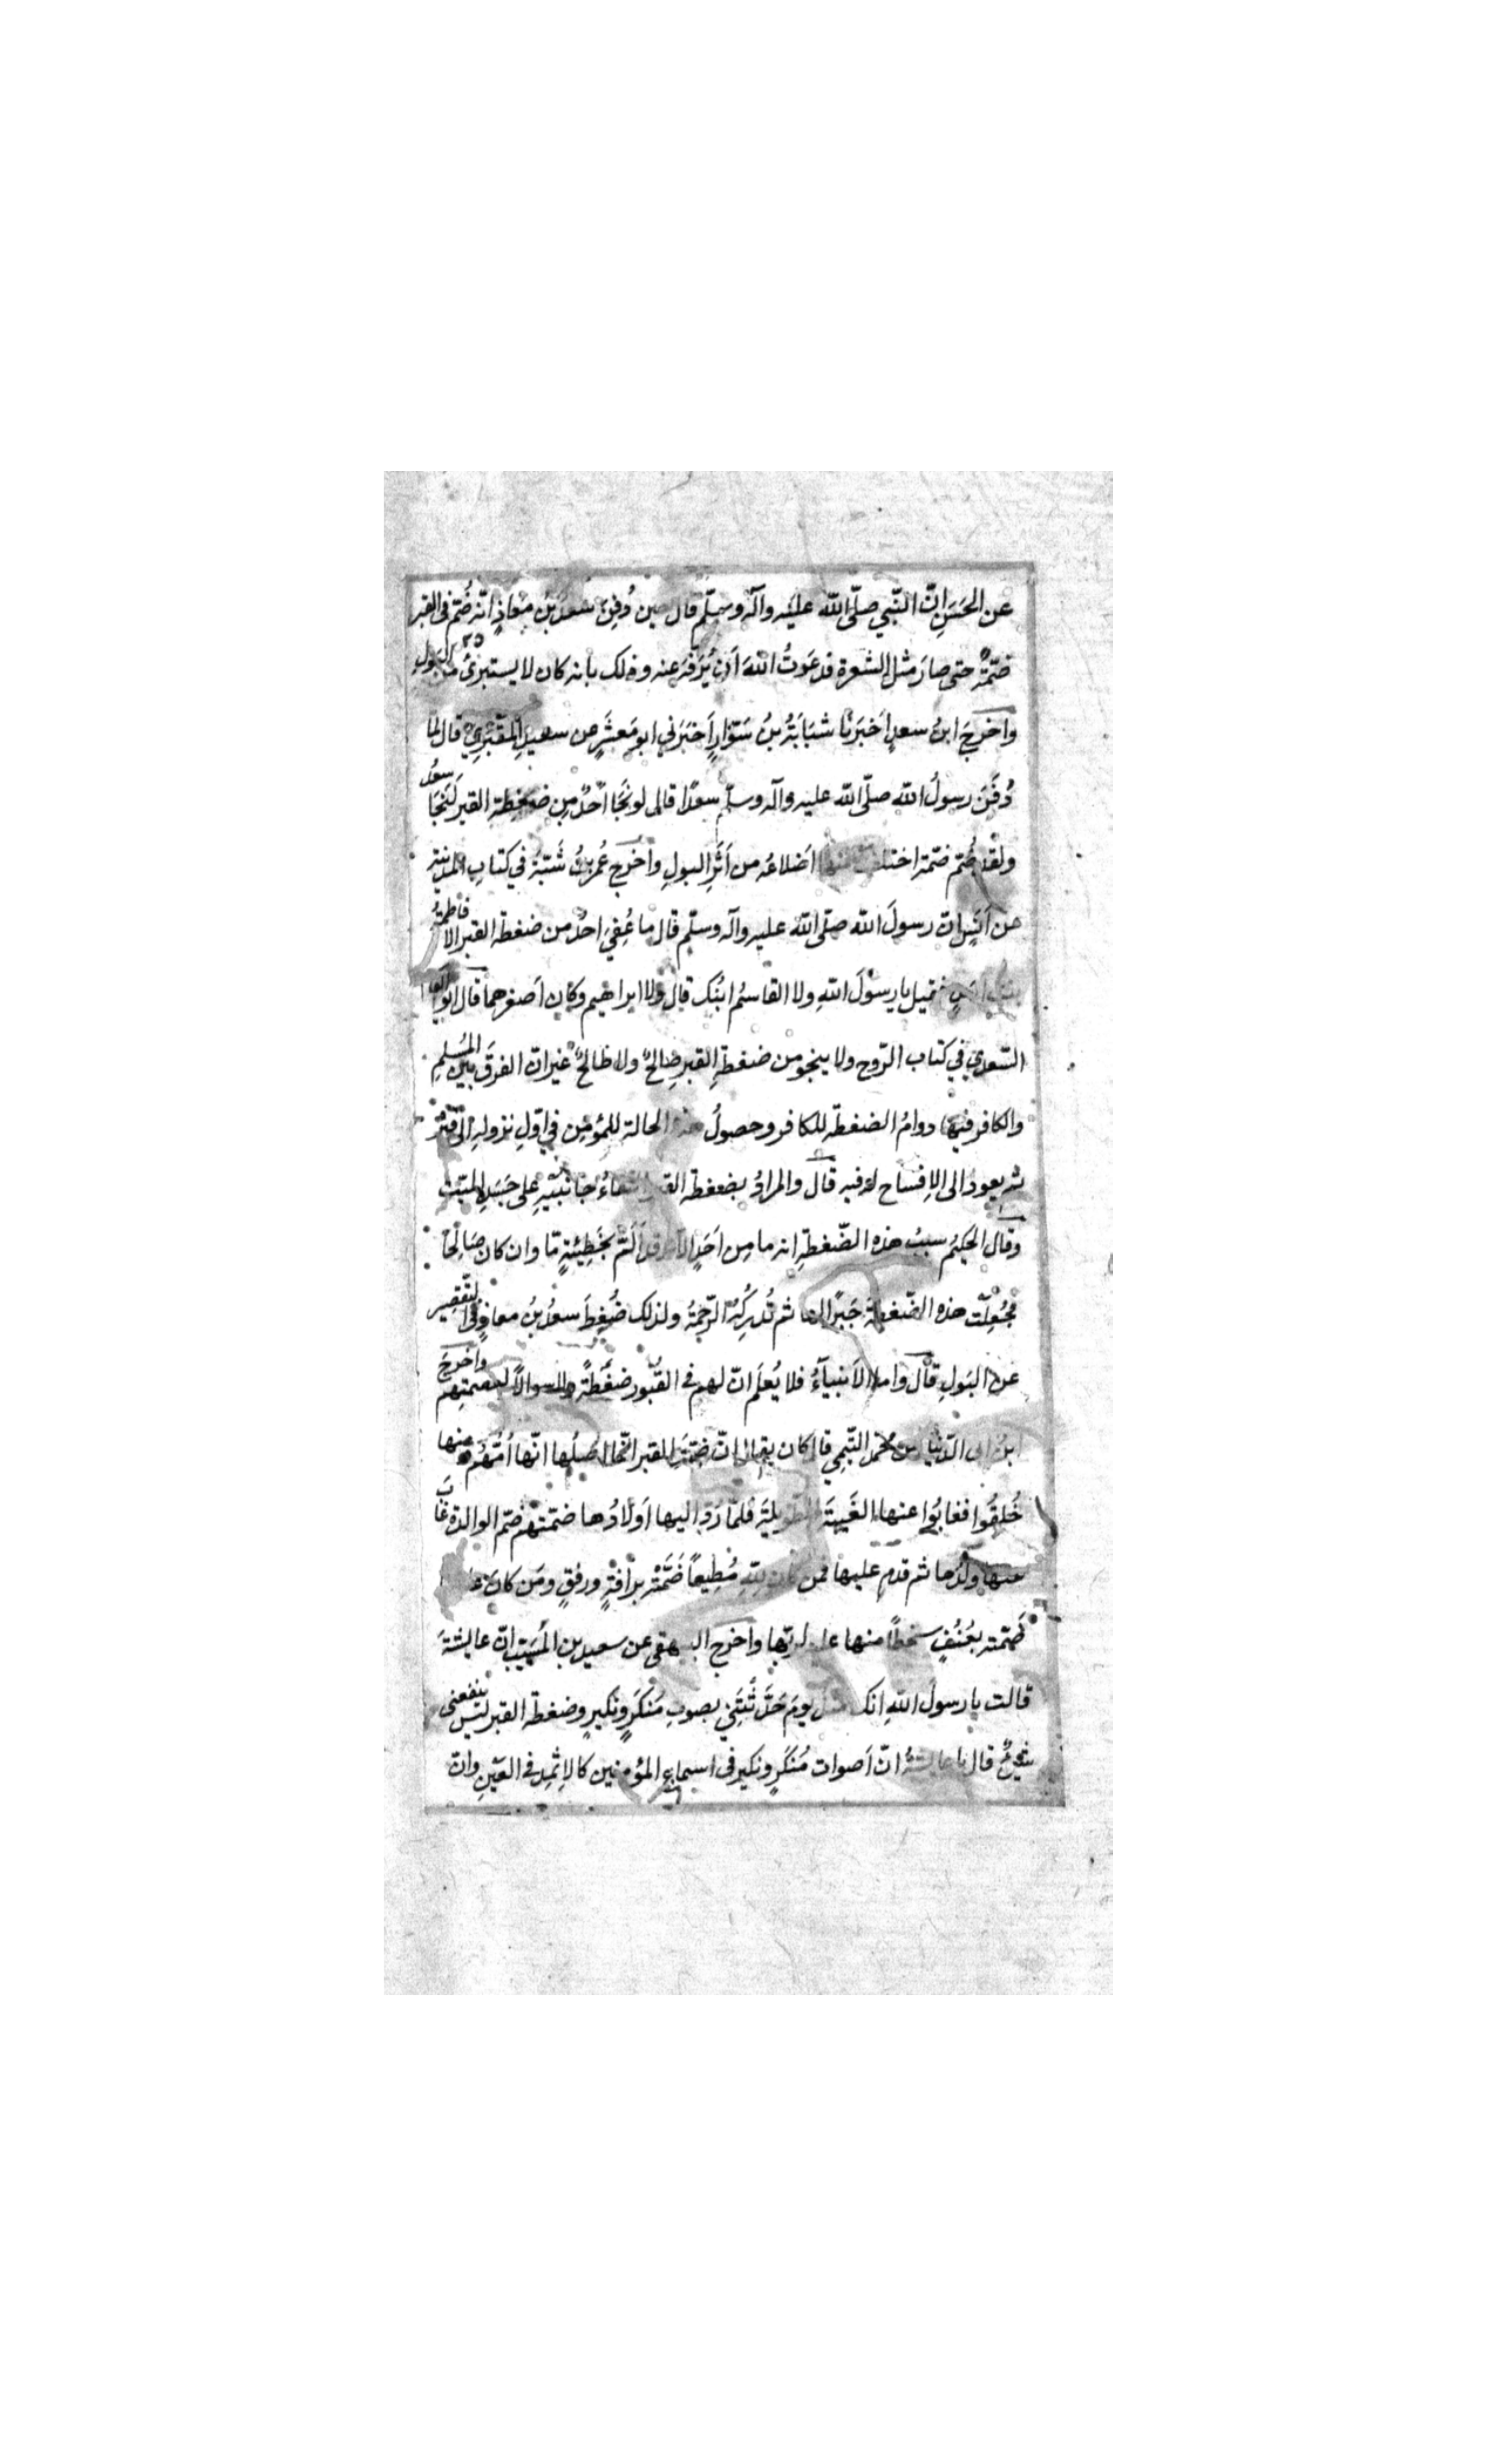 عن الحَسَنِ انّ النّبي صلّى الله عليه وآله وسلّم قال حين دُفِنَ سَعدُ بنُ مَعاذٍ انّه ضُمّ فى القبر
ضَمّةً حتى صارَ مثل الشعرة فدعَوتُ اللهَ اَن يُرَفّهَ عنه وذلك بانه كان لا يستبرئُ من البَولِ
واخرجَ ابنُ سعدٍ اَخبَرنا شبَابَةُ بنُ سَوّارٍ اَخبَرَني ابو مَعشَرٍ عن سعيدِ المَقْبَرِيّ قال لما
دُفَنَ رسولُ الله صلّى الله عليه وآله وسلّم سعدًا قال لو نَجَا اَحدٌ مِن ضغطِةِ القبر لَنَجَا سعدُ
ولقد ضُمّ ضمّة اختلفت منها اَضلاعُه من اَثَرِ البولِ واخرج عُمر بنُ شَبّةَ في كتابِ المدينةِ
عن اَنَسٍ انّ رسولَ الله صلّى الله عليه وآله وسلّم قال ما عُفِيَ احدٌ من ضغطة القبر الا فاطمةُ
بنتُ اسَدٍ فقيل يا رسولَ اللهِ ولا القاسمُ ابنُك قال ولا ابراهيم وكان اَصغرهما قال ابو القا
السّعدي في كتاب الرّوح ولا ينجو من ضغطةِ القبرِ صالحٌ ولا طالحٌ غير انّ الفرقَ بينَ المُسلمِ
والكافر فيها دوامُ الضغطة للكافر وحصولُ هذه الحالة للمؤمِن في اوّلِ نزوله الى قبره
ثم يعود الى الاِفساح له فيه قال والمرادُ بضغطة القبر التقاءُ جانبَيْهِ على جَسَدِ الميّت
وقال الحكيمُ سببُ هذه الضّغطةِ انه ما مِن اَحَدٍ الّا وقد اَلَمَّ بخَطِيئةٍ مّا وان كان صَالِحًا
فجُعِلَت هذه الضّغطةُ جَبرًا لها ثم تُدرِكُهُ الرّحمَةُ ولذلك ضُغِطَ سعدُ بنُ معاذٍ في التّقصِير
عن البَولِ قال واما الاَنبيآءُ فلا يُعلَم انّ لهم في القُبُور ضغْطةً ولا سوالاً لعصمتِهِم واخرجَ
ابنُ ابى الدّنيا عن محمّد التّيمِي قال كان يقال انّ ضمّةَ القبر انّما اصلُها انّها اُمّهم ومنها
خُلِقُوا فغابُوا عنها الغَيبَةَ الطّويلةَ فلمّا رَدّ اليها اَولادُها ضمّتهُم ضمّ الوالدة غابَ
عنها ولدُها ثم قدم عليها فمن كان لِلّهِ مُطِيعًا ضَمَّتْه برَافةٍ ورفقٍ ومَن كان عا
ضَمّته بعُنفٍ سخطًا منها عليه لربّها واخرج البيهقى عن سعيد بن المُسَيّب انّ عايشةَ
قالت يا رسولَ اللهِ انك منذُ يومَ حَدَّثْتَنِي بصوتِ مُنكَرٍ ونكيرٍ وضغطة القبر ليسَ ينفعنى
شيئٌ قال يا عايشةُ انّ اَصوات مُنكَرٍ ونكير فى اسماعِ المؤمنين كالاِثمِدِ في العَيْنِ وانّ